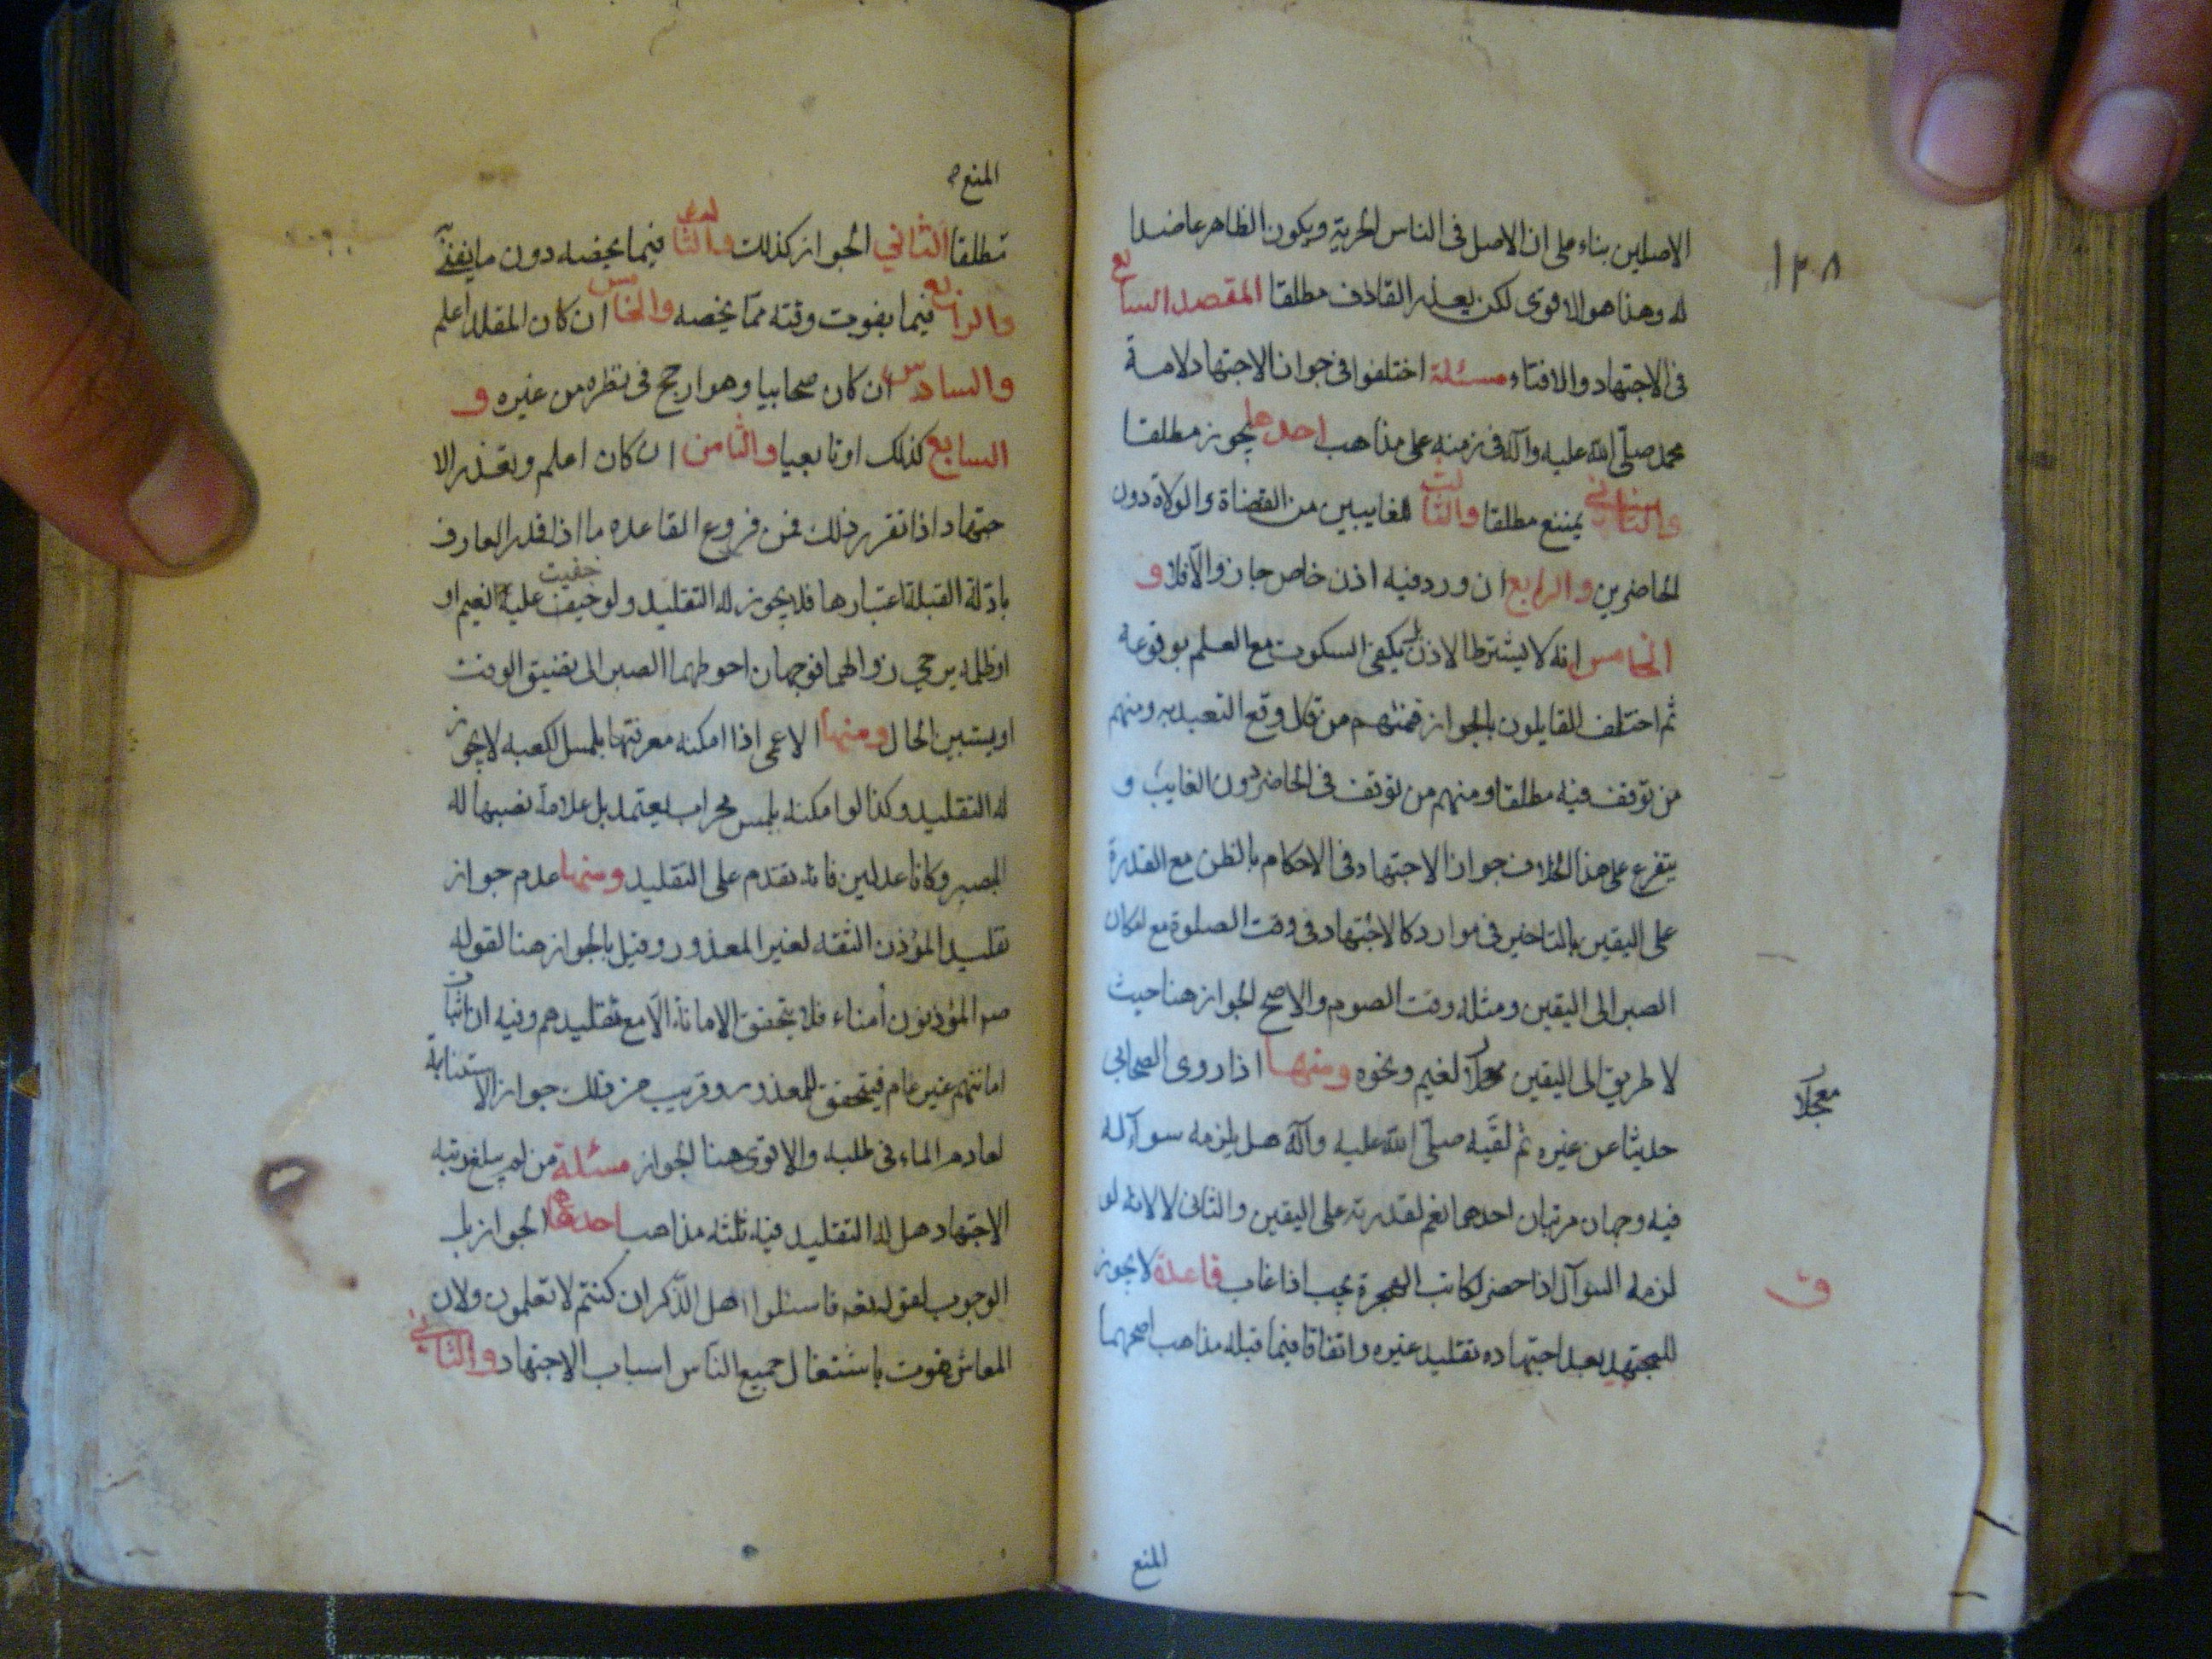 ١٣٨
الاصلين بناء على ان الاصل فى الناس الحرية ويكون الظاهر عاضدا
له وهذا هو الاقوى لكن يعذر القاذف مطلقا المقصد السابع
فى الاجتهاد والافتاء مسئلة اختلفوا فى جواز الاجتهاد لامة
محمد صلى الله عليه وآله فى زمنه على مذاهب احدها يجوز مطلقا
والثانى يمتنع مطلقا والثالث للغايبين من القضاة والولاة دون
الحاضرين والرابع ان ورد فيه اذن خاص جاز والّا فلا و
الخامس انه لا يشترط الاذن بل يكفى السكوت مع العلم بوقوعه
ثم اختلف القايلون بالجواز فمنهم من قال وقع التعبد به ومنهم
من توقف فيه مطلقا ومنهم من توقف فى الحاضر دون الغايب و
يتفرع على هذا الخلاف جواز الاجتهاد فى الاحكام بالظن مع القدرة
على اليقين بالتاخير فى موارد كالاجتهاد فى وقت الصلوة مع امكان
الصبر الى اليقين ومثله وقت الصوم والاصح الجواز هنا حيث
لا طريق الى اليقين معجلا لغيم ونحوه ومنها اذا روى الصحابى
معجلا
حديثا عن غيره ثم لقيه صلّى الله عليه وآله هل يلزمه سوآله
فيه وجهان مرتبان احدهما نعم لقدرته على اليقين والثانى لا لانه لو
لزمه السوآل اذا حضر لكانت الهجرة يجب اذا غاب قاعدة لا يجوز
ق
للمجتهد بعد اجتهاده تقليد غيره واتفاقا فيما قبله مذاهب اصحهما
المنع
المنع
مطلقا الثانى الجواز كذلك والثالث فيما يخصه دون ما يفتى
والرابع فيما يفوت وقته مما يخصه والخامس ان كان المقلد اعلم
والسادس ان كان صحابيا وهو ارجح فى نظره من غيره و
السابع كذلك او تابعيا والثامن ان كان اعلم وتعذر الا
جتهاد اذا تقرر ذلك فمن فروع القاعده ما اذا قدر العارف
بادلة القبلة اعتبارها فلا يجوز له التقليد ولو خفيت عليه لغيم او
او ظلمه يرجى زوالهما فوجهان احوطهما الصبر الى تضيق الوقت
او يستبين الحال ومنها الاعمى اذا امكنه معرفتها بلمس الكعبه لا يجوز
له التقليد وكذا لو امكنه بلمس محراب يعتمد بل علامة نصبها له
البصير وكانا عدلين فانه تقدم على التقليد ومنها عدم جواز
تقليد المؤذن الثقه لغير المعذور وقيل بالجواز هنا لقوله
ص المؤذنون أمناء فلا يتحقق الامانة الّا مع تقليدهم وفيه ان اثبات
امانتهم غير عام فيتحقق للمعذور وقريب من ذلك جواز الاستنابة
لعادم الماء فى طلبه والاقوى هنا الجواز مسئلة من لم يبلغ رتبه
الاجتهاد هل له التقليد فيه ثلثه مذاهب احدها الجواز بل
الوجوب لقوله تعه فاسئلوا اهل الذّكر ان كنتم لا تعلمون ولان
المعاش يفوت باشتغال جميع الناس اسباب الاجتهاد والثانى